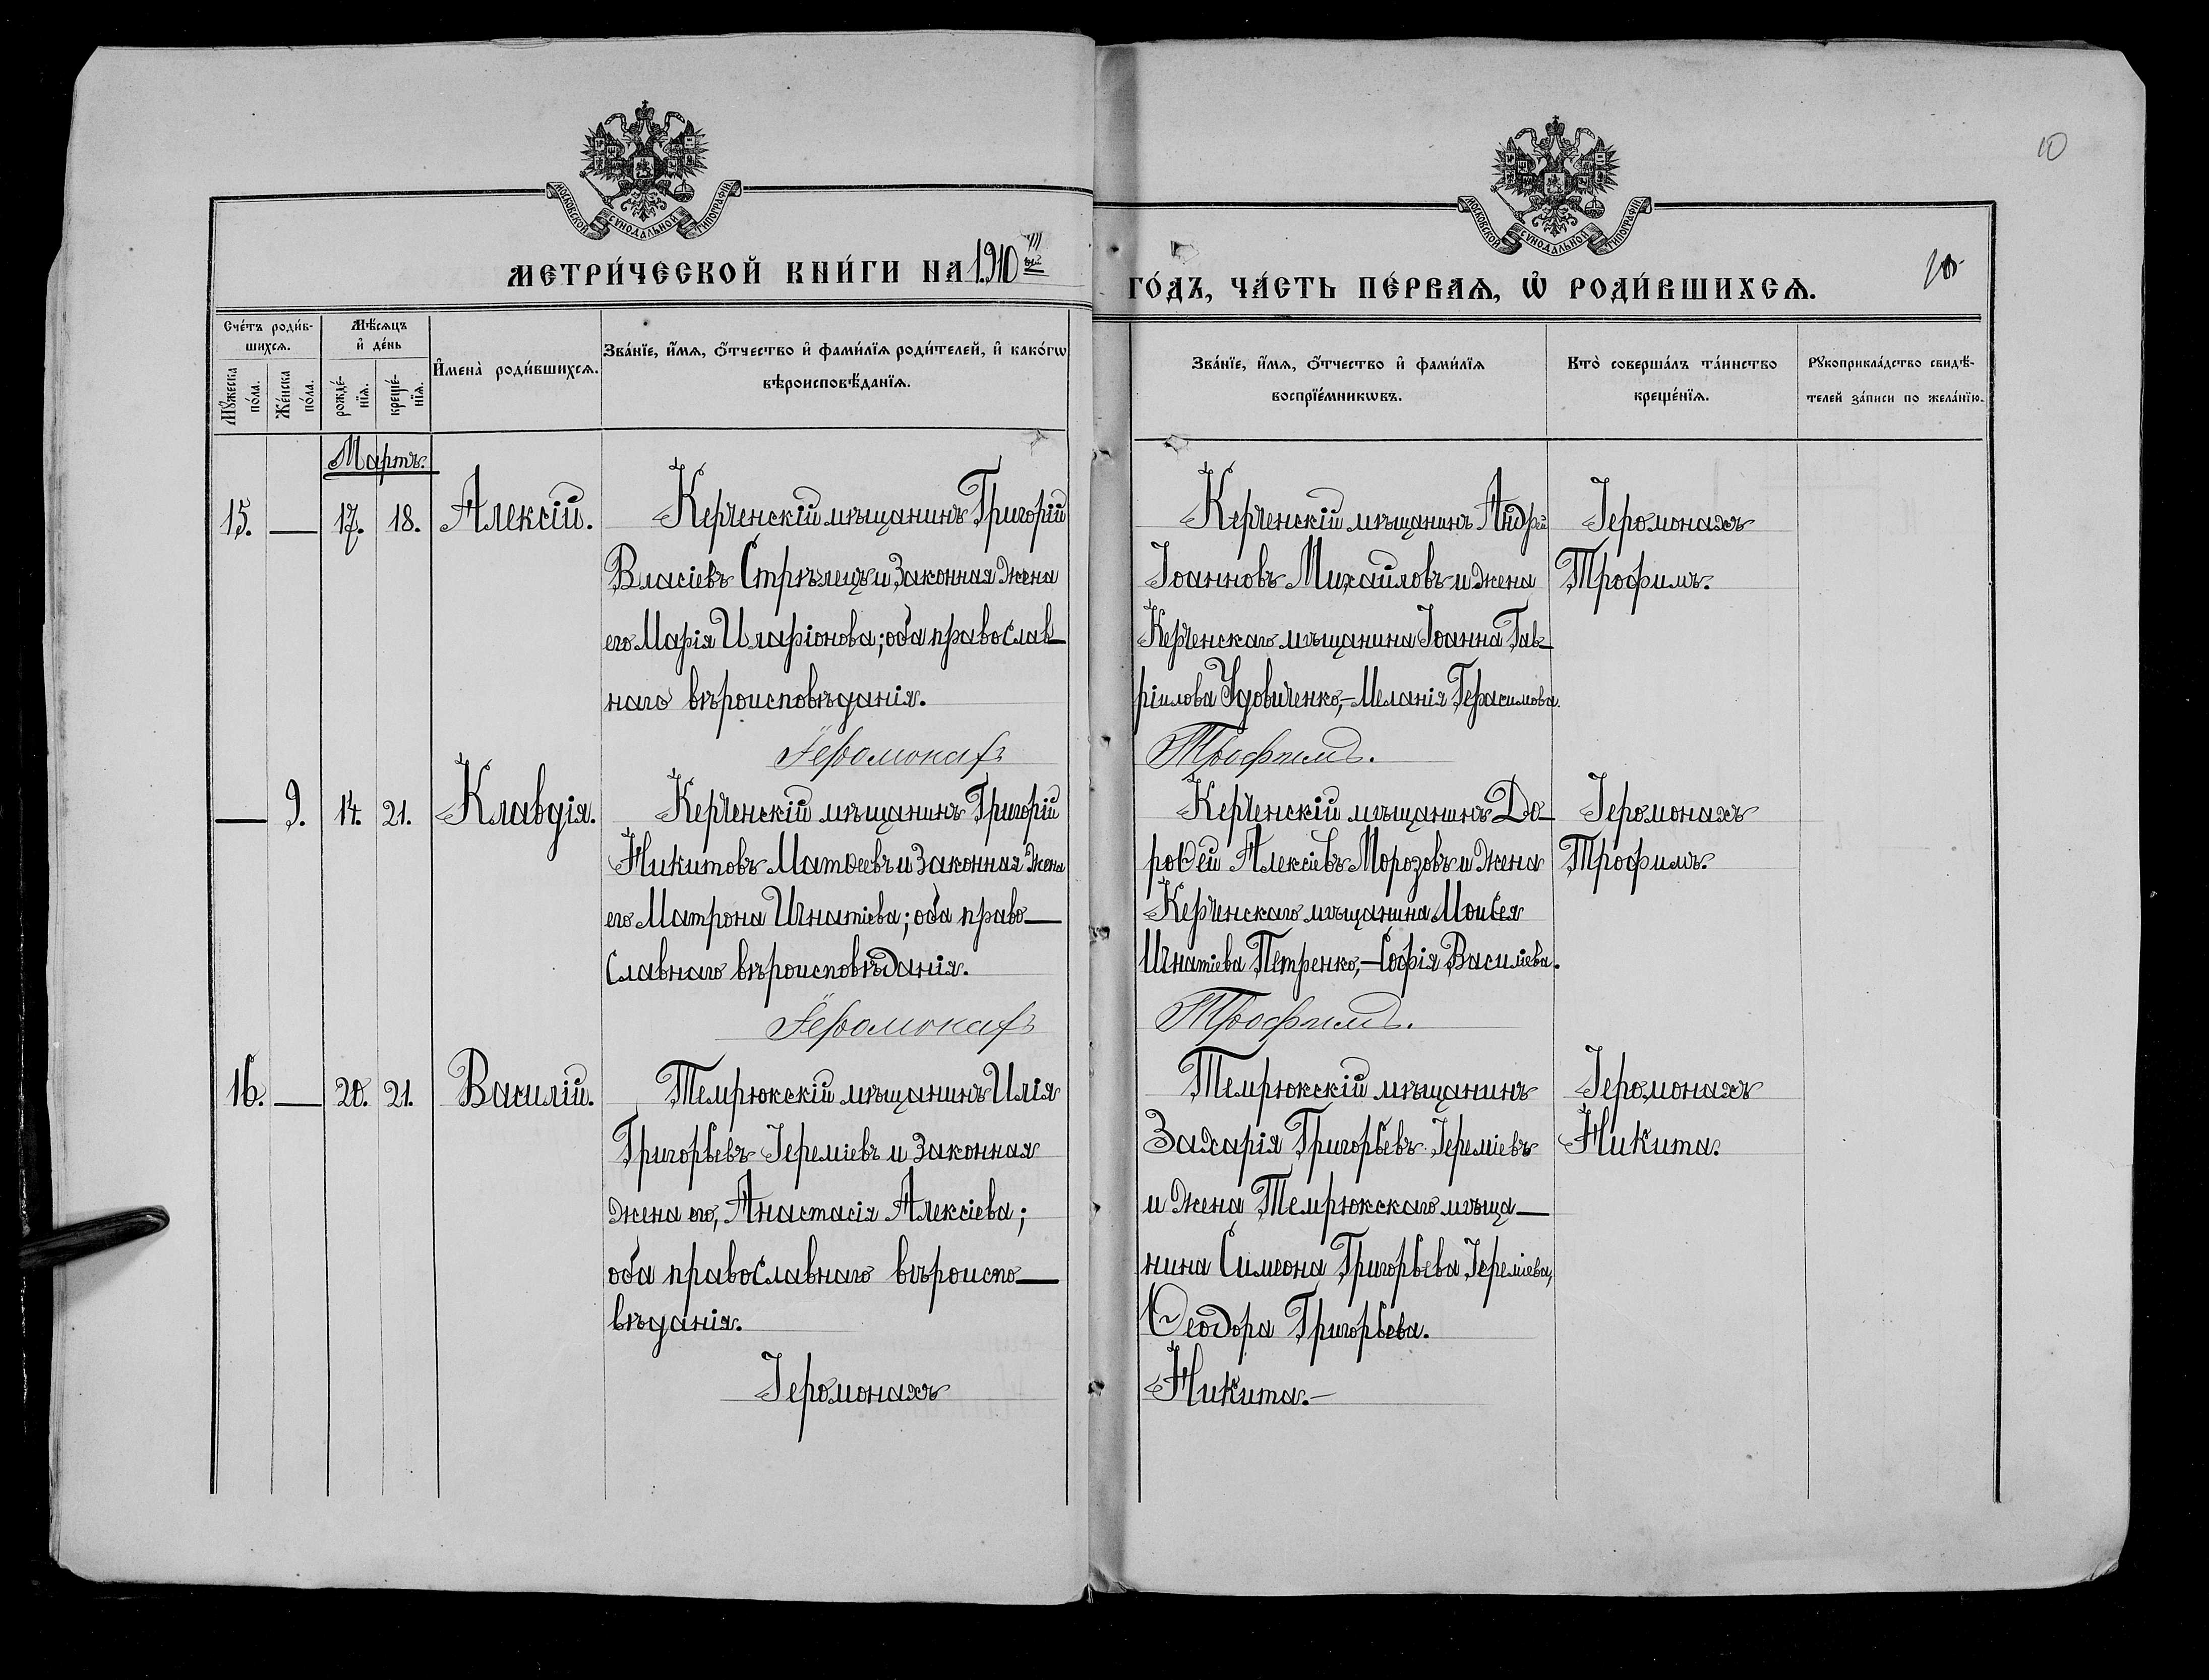 10
МОСКОВСКОЙ СѴНОДАЛЬНОЙ ТИПОГРАФІИ
МОСКОВСКОЙ СѴНОДАЛЬНОЙ ТИПОГРАФІИ
МЕТРИ́ЧЕСКОЙ КНИ́ГИ НА 1910ый
ГО́ДЪ, ЧА́СТЬ ПЕ́РВАѦ, Ѡ҆ РОДИ́ВШИХСѦ.
10
Сче́тъ роди́в-
шихсѧ.
Мѣ́сѧцъ
и҆ де́нь
Мꙋ́жеска
по́ла.
Же́нска
по́ла.
рожде́-
нїѧ.
креще́-
нїѧ.
И҆мена̀ роди́вшихсѧ.
Зва́нїе, и҆́мѧ, ѻ҆́тчество и҆ фами́лїѧ роди́телей, и҆ како́гѡ
вѣроисповѣ́данїѧ.
Зва́нїе, и҆́мѧ, ѻ҆́тчество и҆ фами́лїѧ
воспрїе́мникѡвъ.
Кто̀ соверша́лъ та́инство
креще́нїѧ.
Рꙋкоприкла́дство свидѣ́-
телей за́писи по жела́нїю.
Мартъ.
15. — 17. 18. Алексій.
Керченскій мѣщанинъ Григорій
Власіевъ Стрѣлецъ и законная жена
его Марія Иларіонова; оба православ–
наго вѣроисповѣданія.
Іеромонахъ
Керченскій мѣщанинъ Андрей
Іоанновъ Михайловъ и жена
Керченскаго мѣщанина Іоанна Гав–
ріилова Удовиченко,– Меланія Герасимова.
Трофимъ.
Іеромонахъ
Трофимъ.
— 9. 14. 21. Клавдія.
Керченскій мѣщанинъ Григорій
Никитовъ Матѳеевъ и законная жена
его Матрона Игнатіева; оба право—
славнаго вѣроисповѣданія.
Іеромонахъ
Керченскій мѣщанинъ До–
роѳей Алексіевъ Морозовъ и жена
Керченскаго мѣщанина Моисея
Игнатіева Петренко,– Софія Василіева.
Трофимъ.
Іеромонахъ
Трофимъ.
16. — 20. 21. Василій.
Темрюкскій мѣщанинъ Илія
Григорьевъ Іереміевъ и законная
жена его, Анастасія Алексіева;
оба православнаго вѣроиспо—
вѣданія.
Іеромонахъ
Темрюкскій мѣщанинъ
Захарія Григорьевъ Іереміевъ
и жена Темрюкскаго мѣща—
нина Симеона Григорьева Іереміева,
Ѳеодора Григорьева.
Никита.–
Іеромонахъ
Никита.